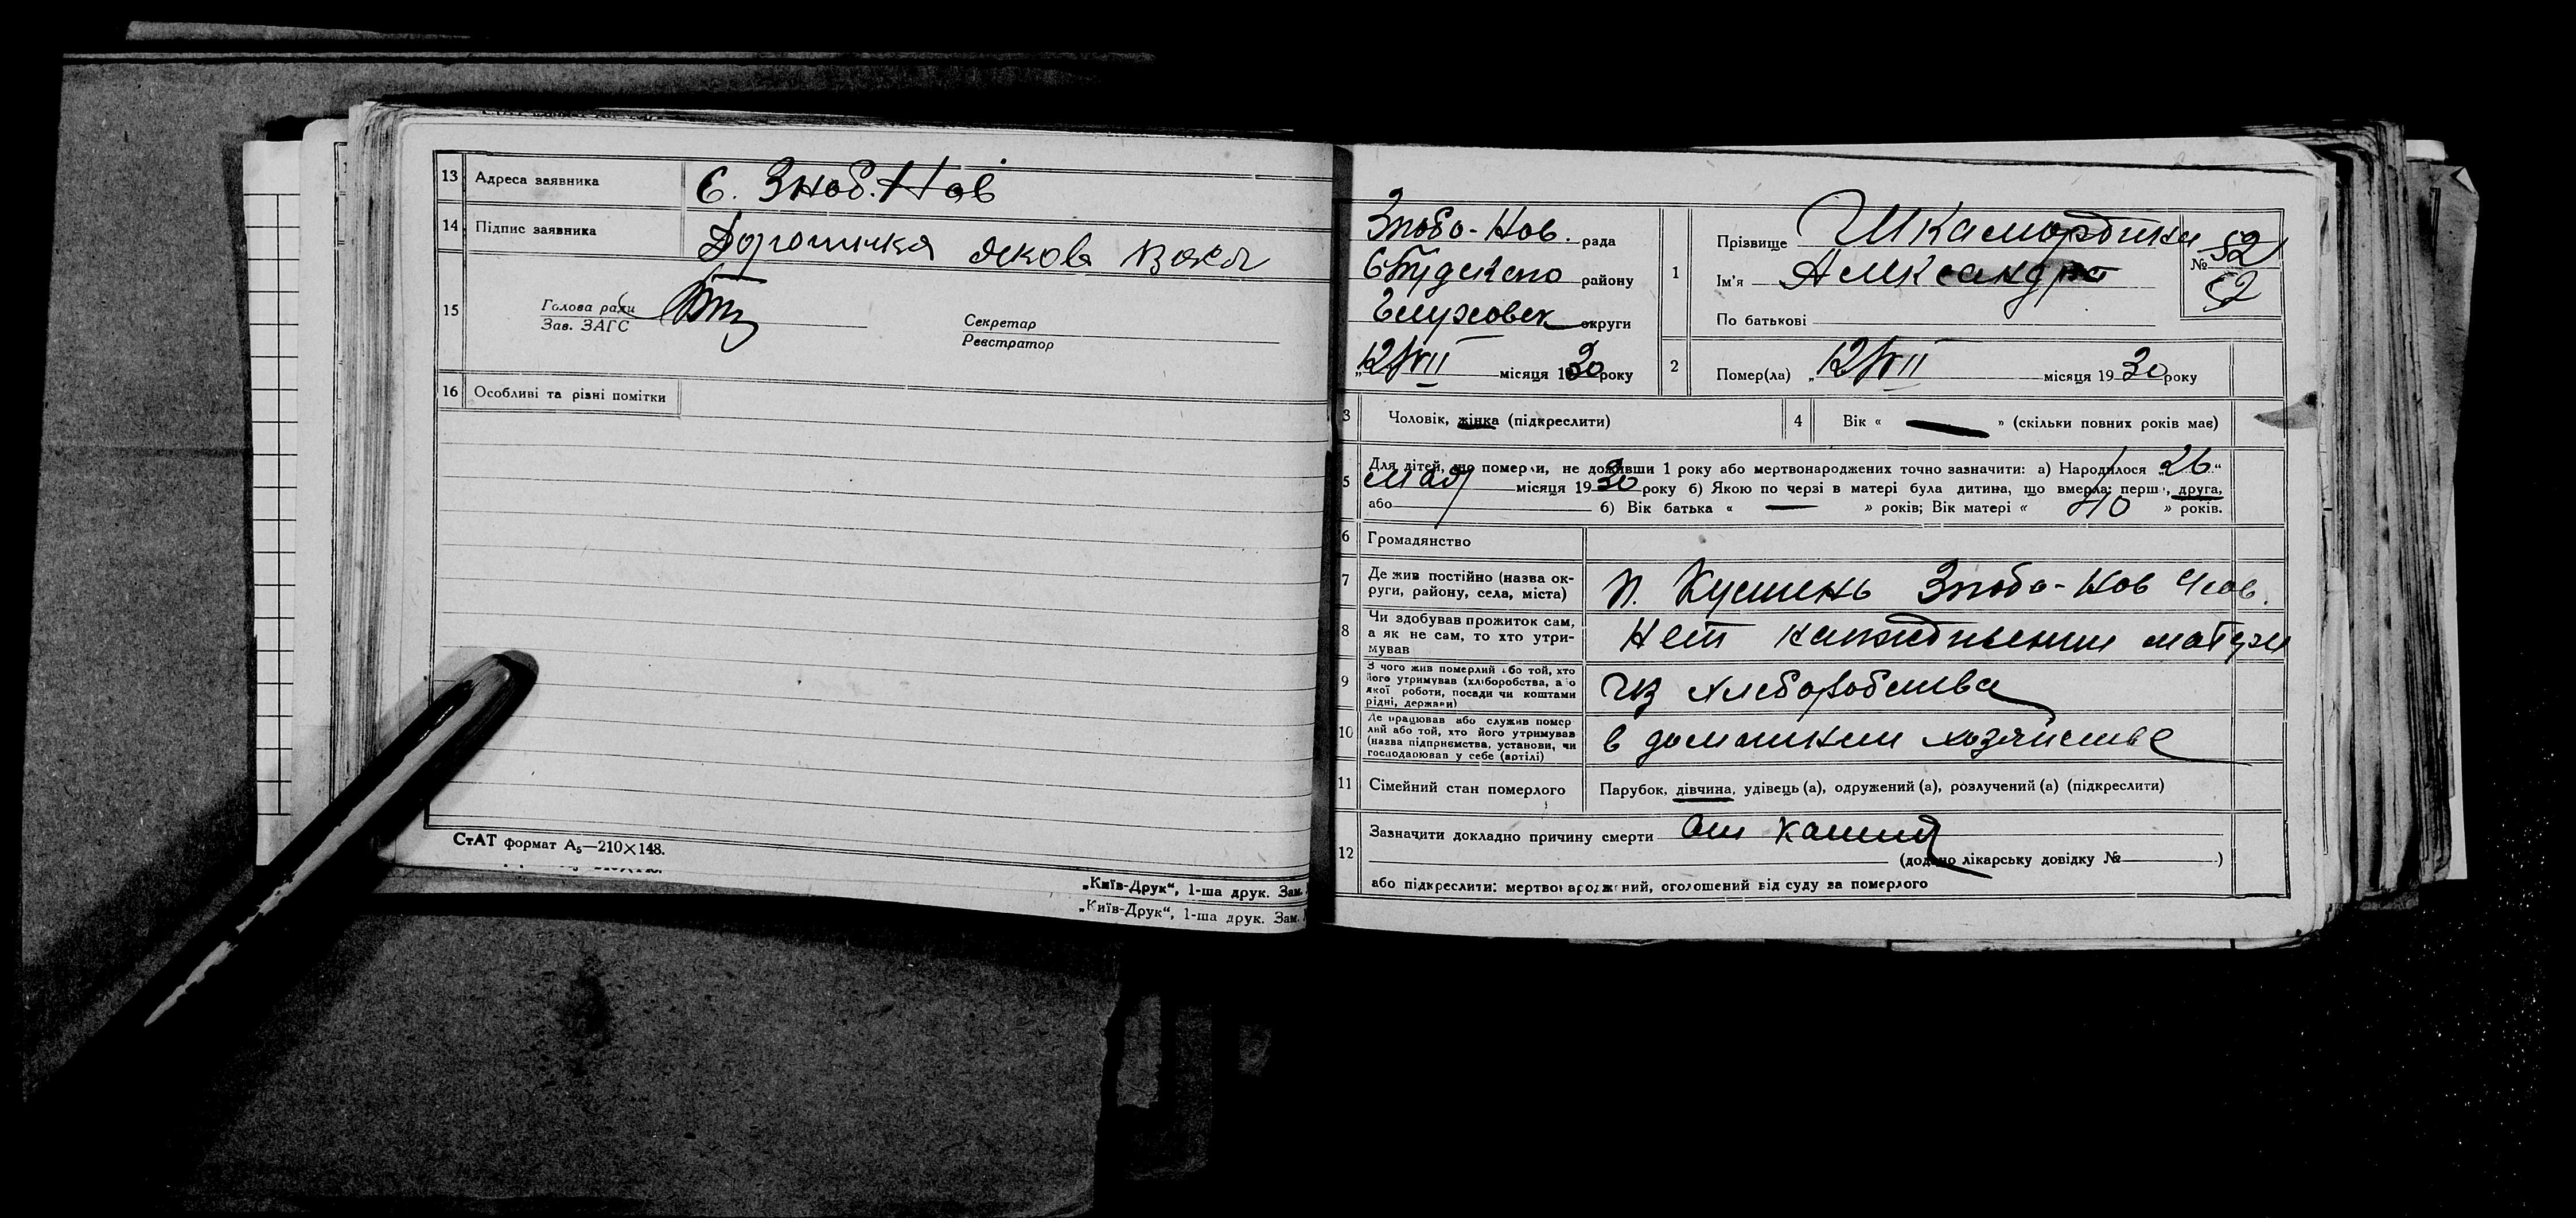 13 Адреса заявника С. Зноб. Нов
14 Підпис заявника Дорошичка Якова
15 Голова ради
Зав. ЗАГС
Секретар
Реєстратор
16 Особливі та різні помітки
СтАТ формат А₅—210×148.
„Київ-Друк“, 1-ша друк. Зам.
„Київ-Друк“, 1-ша друк. Зам.
Знобо-Нов. рада
району
Глуховск округи
„12/VII місяця 1930 року
1 Прізвище
Ім'я Александра
По батькові
№ 52
52
2 Помер(ла) „12/VII місяця 1930 року
3 Чоловік, жінка (підкреслити)
4 Вік « — » (скільки повних років має)
5 Для дітей, що померли, не доживши 1 року або мертвонароджених точно зазначити: а) Народилося „26“
мая місяця 1930 року б) Якою по черзі в матері була дитина, що вмерла: перша, друга,
або б) Вік батька « — » років; Вік матері « 40 » років.
6 Громадянство
7 Де жив постійно (назва округи, району, села, міста) п. Знобо-Нов
8 Чи здобував прожиток сам, а як не сам, то хто утримував Нет матери
9 З чого жив померлий або той, хто його утримував (хліборобства, або якої роботи, посади чи коштами рідні, держави) Из хлеборобства
10 Де працював або служив померлий або той, хто його утримував (назва підприємства, установи, чи господарював у себе (артілі) в домашнем хозяйстве
11 Сімейний стан померлого Парубок, дівчина, удівець (а), одружений (а), розлучений (а) (підкреслити)
12 Зазначити докладно причину смерти От кашля
(додано лікарську довідку № )
або підкреслити: мертвонароджений, оголошений від суду за померлого